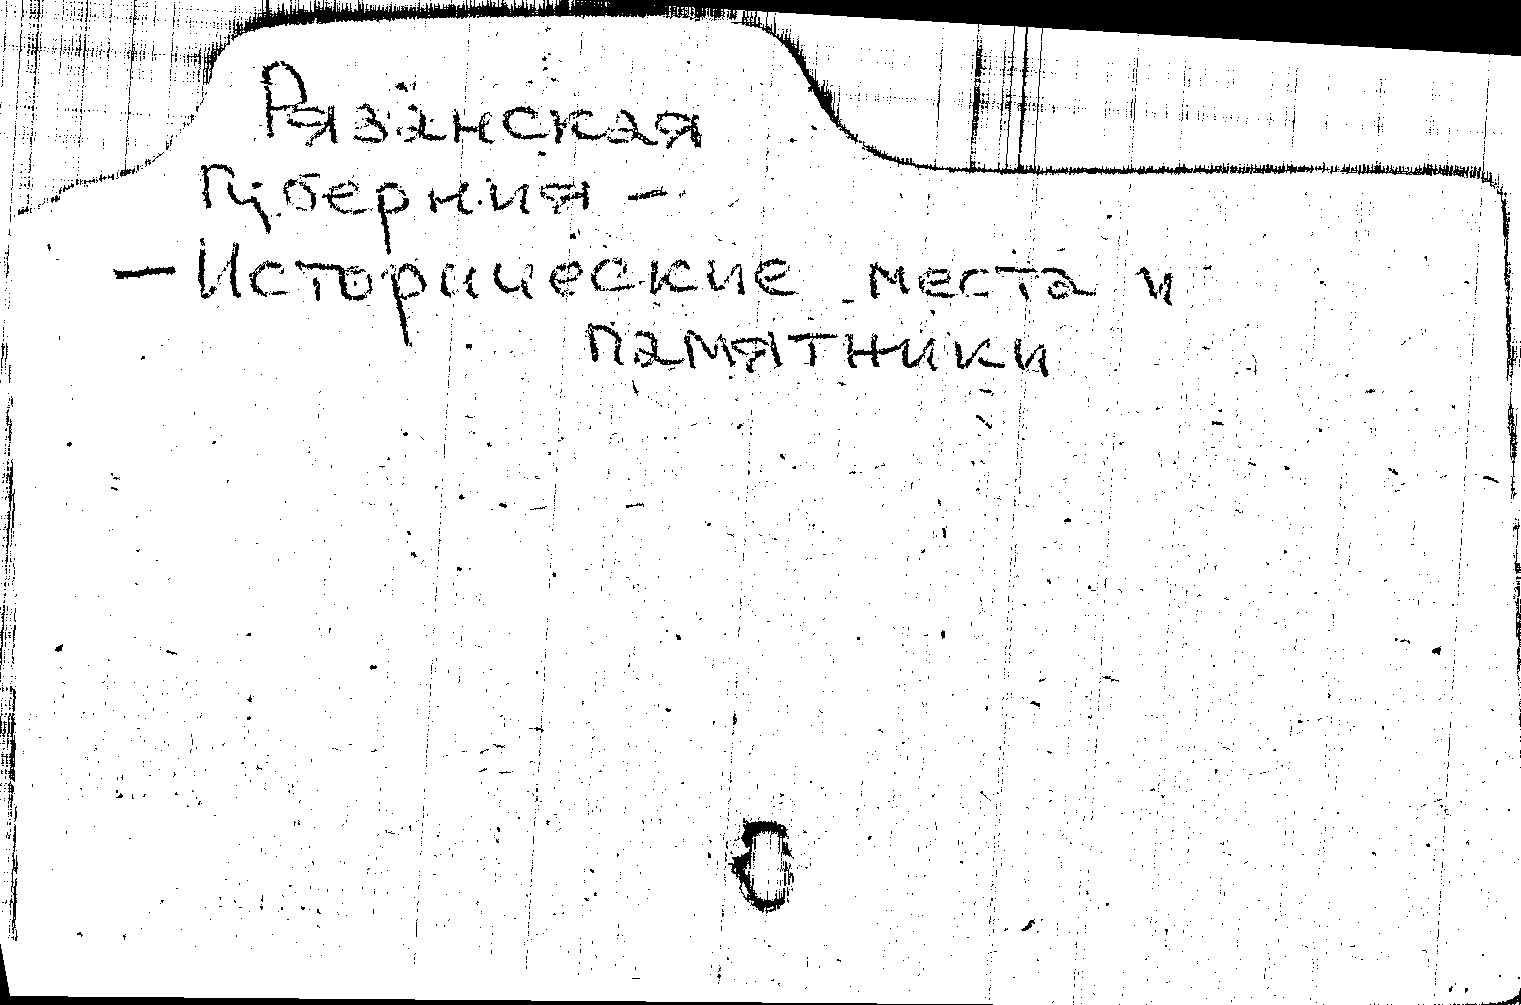 Рязанская
Губерния –
– Исторические места и
памятники